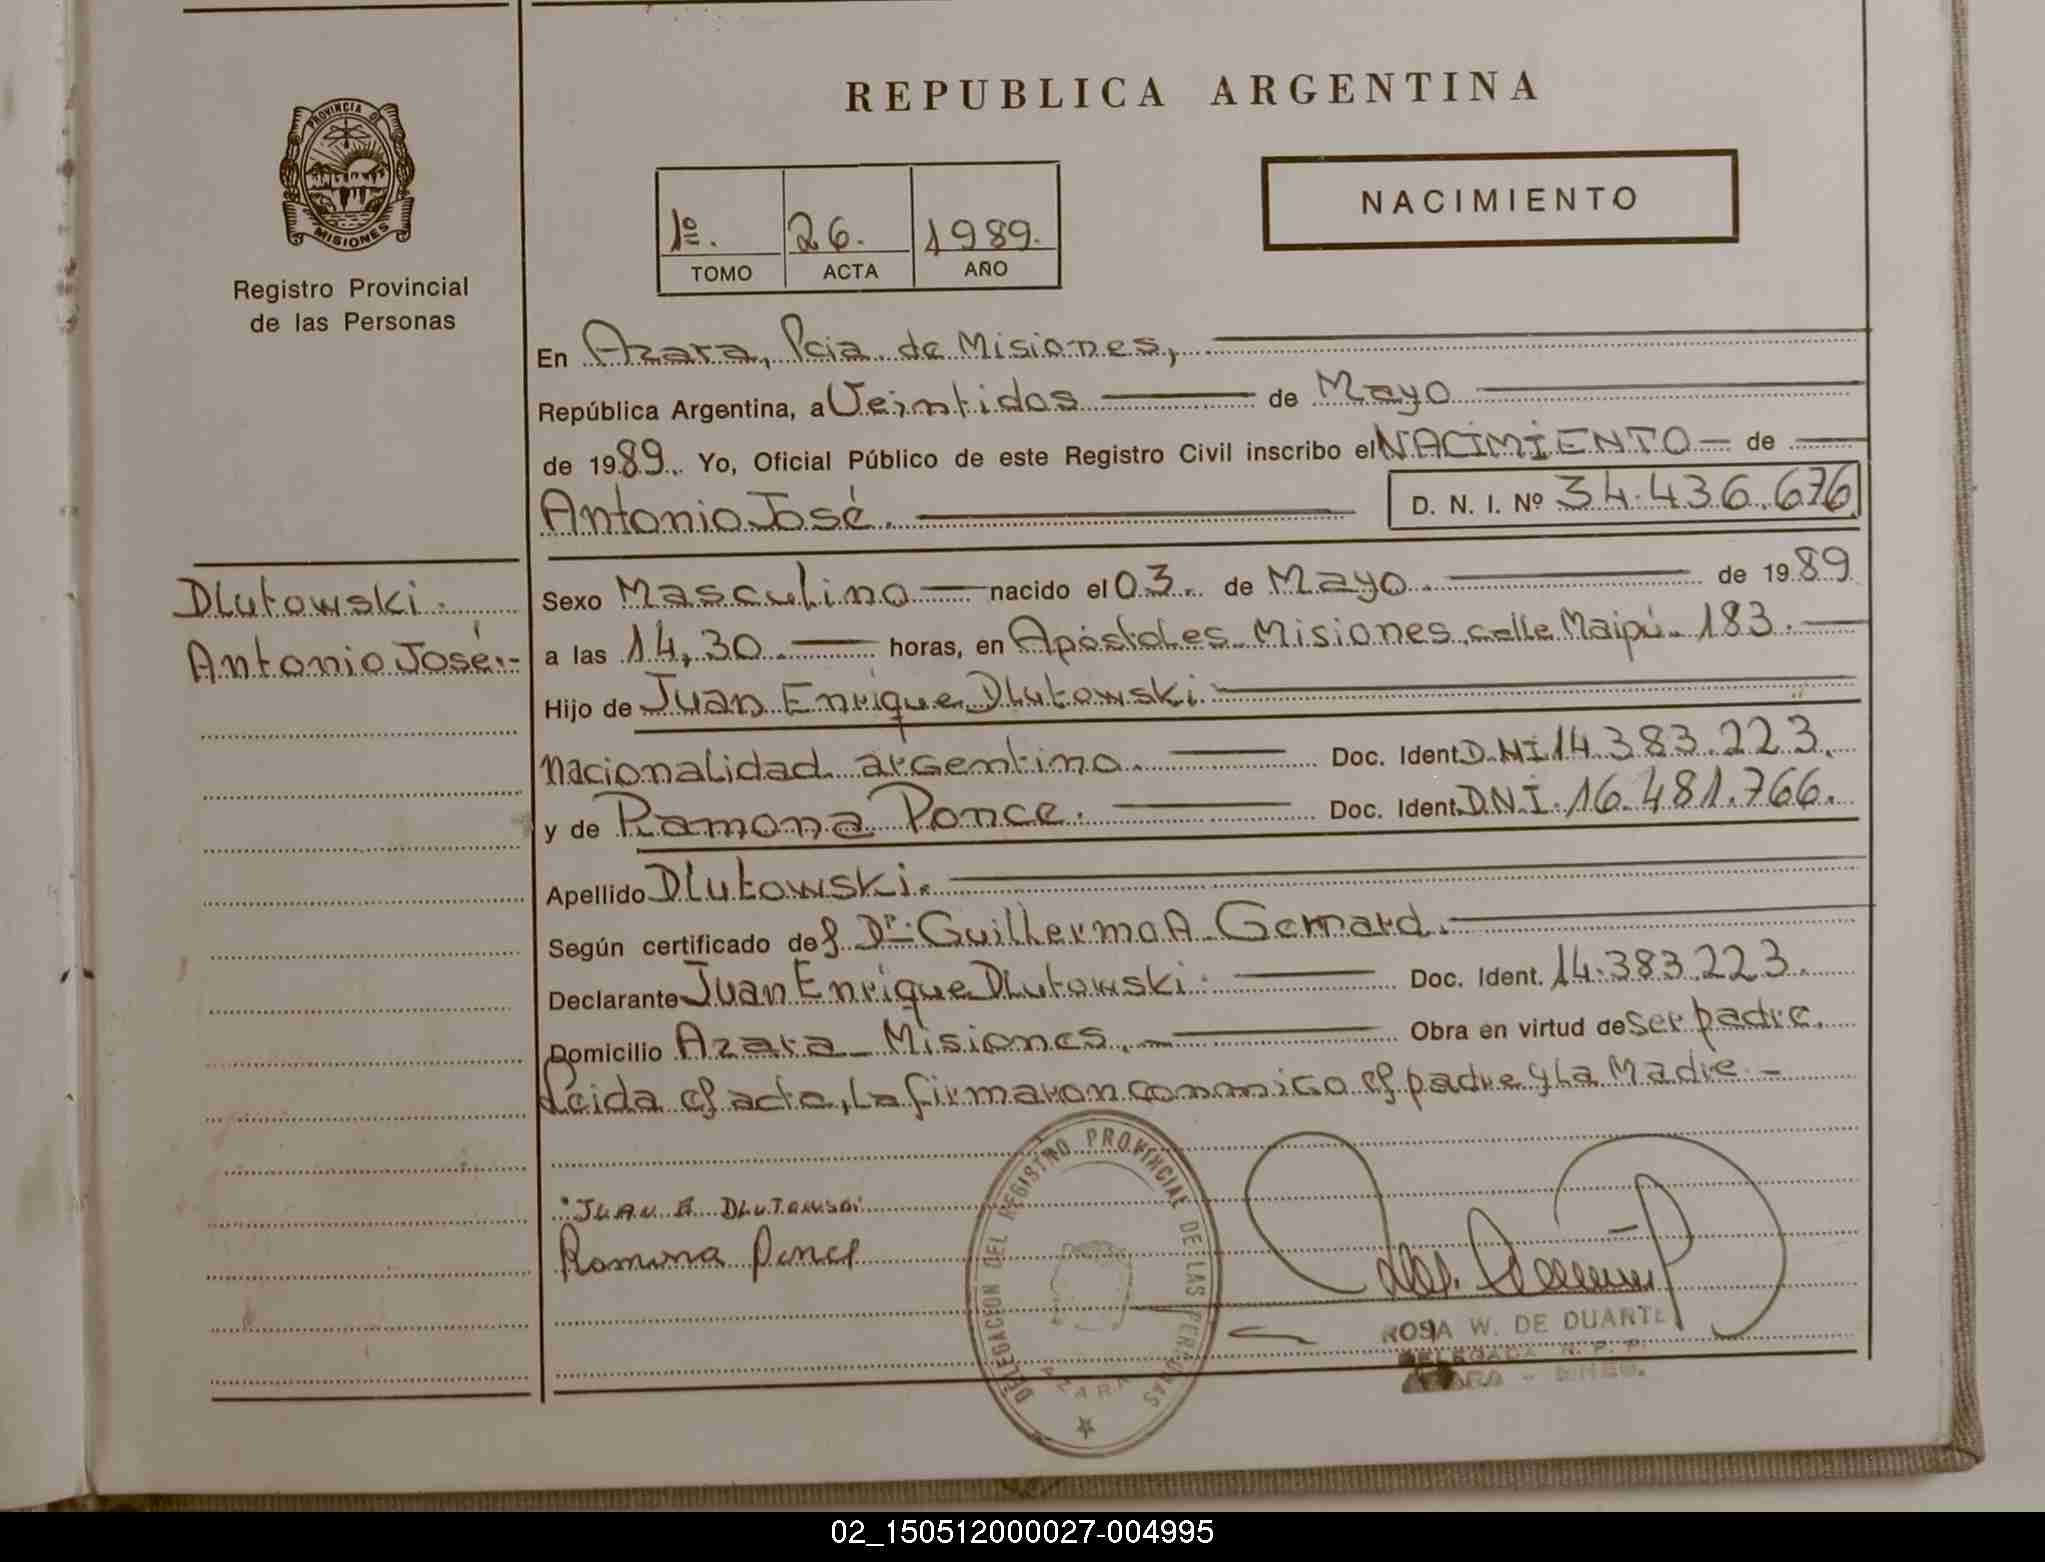 REPUBLICA ARGENTINA
PROVINCIA DE
MISIONES
Registro Provincial
de las Personas
1º. 26. 1989.
TOMO ACTA AÑO
NACIMIENTO
En Azara, Pcia de Misiones,
República Argentina, a Veintidos de Mayo
de 1989. Yo, Oficial Público de este Registro Civil inscribo el NACIMIENTO de
Antonio José. D. N. I. Nº 34.436.676
Dlutowski.
Antonio José.-
Sexo Masculino nacido el 03. de Mayo. de 1989
a las 14,30. horas, en Apóstoles. Misiones, calle Maipú. 183.
Hijo de Juan Enrique Dlutowski.
nacionalidad argentina. Doc. Ident. D.NI 14.383.223.
y de Ramona Ponce. Doc. Ident. D.N.I. 16.481.766.
Apellido Dlutowski.
Según certificado del Dr. Guillermo A.
Declarante Juan Enrique Dlutowski. Doc. Ident. 14.383.223.
Domicilio Azara - Misiones. Obra en virtud de ser padre.
Leida el acta, la firmaron conmigo el padre y la Madre.-
JUAN E DLUTOWSKI
Ramona Ponce
DELEGACION DEL REGISTRO PROVINCIAL DE LAS PERSONAS
AZARA
ROSA W. DE DUARTE
DELEGADA R. P. P.
AZARA - MNES.
02_150512000027-004995